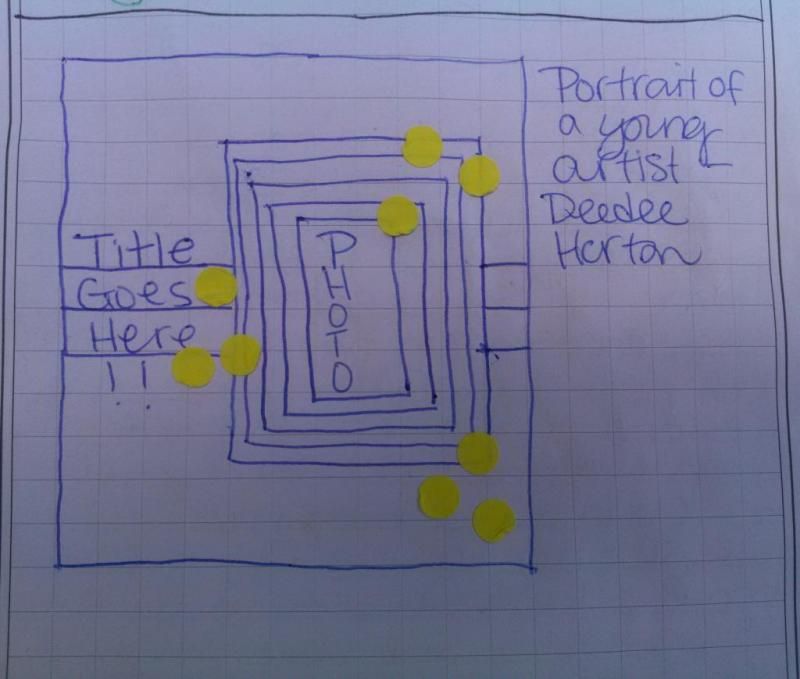 Title
Goes
Here
!!
P
H
O
T
O
Portrait of
a young
artist
Deedee
Horton